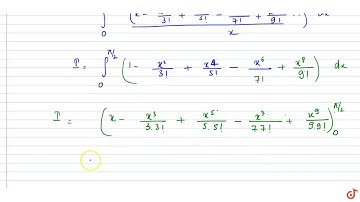 ∫₀ (x - x³/3! + x⁵/5! - x⁷/7! + x⁹/9! ..) / x dx
I = ∫₀^(π/2) (1 - x²/3! + x⁴/5! - x⁶/7! + x⁸/9!) dx
I = (x - x³/3.3! + x⁵/5.5! - x⁷/7 7! + x⁹/9.9!)₀^(π/2)